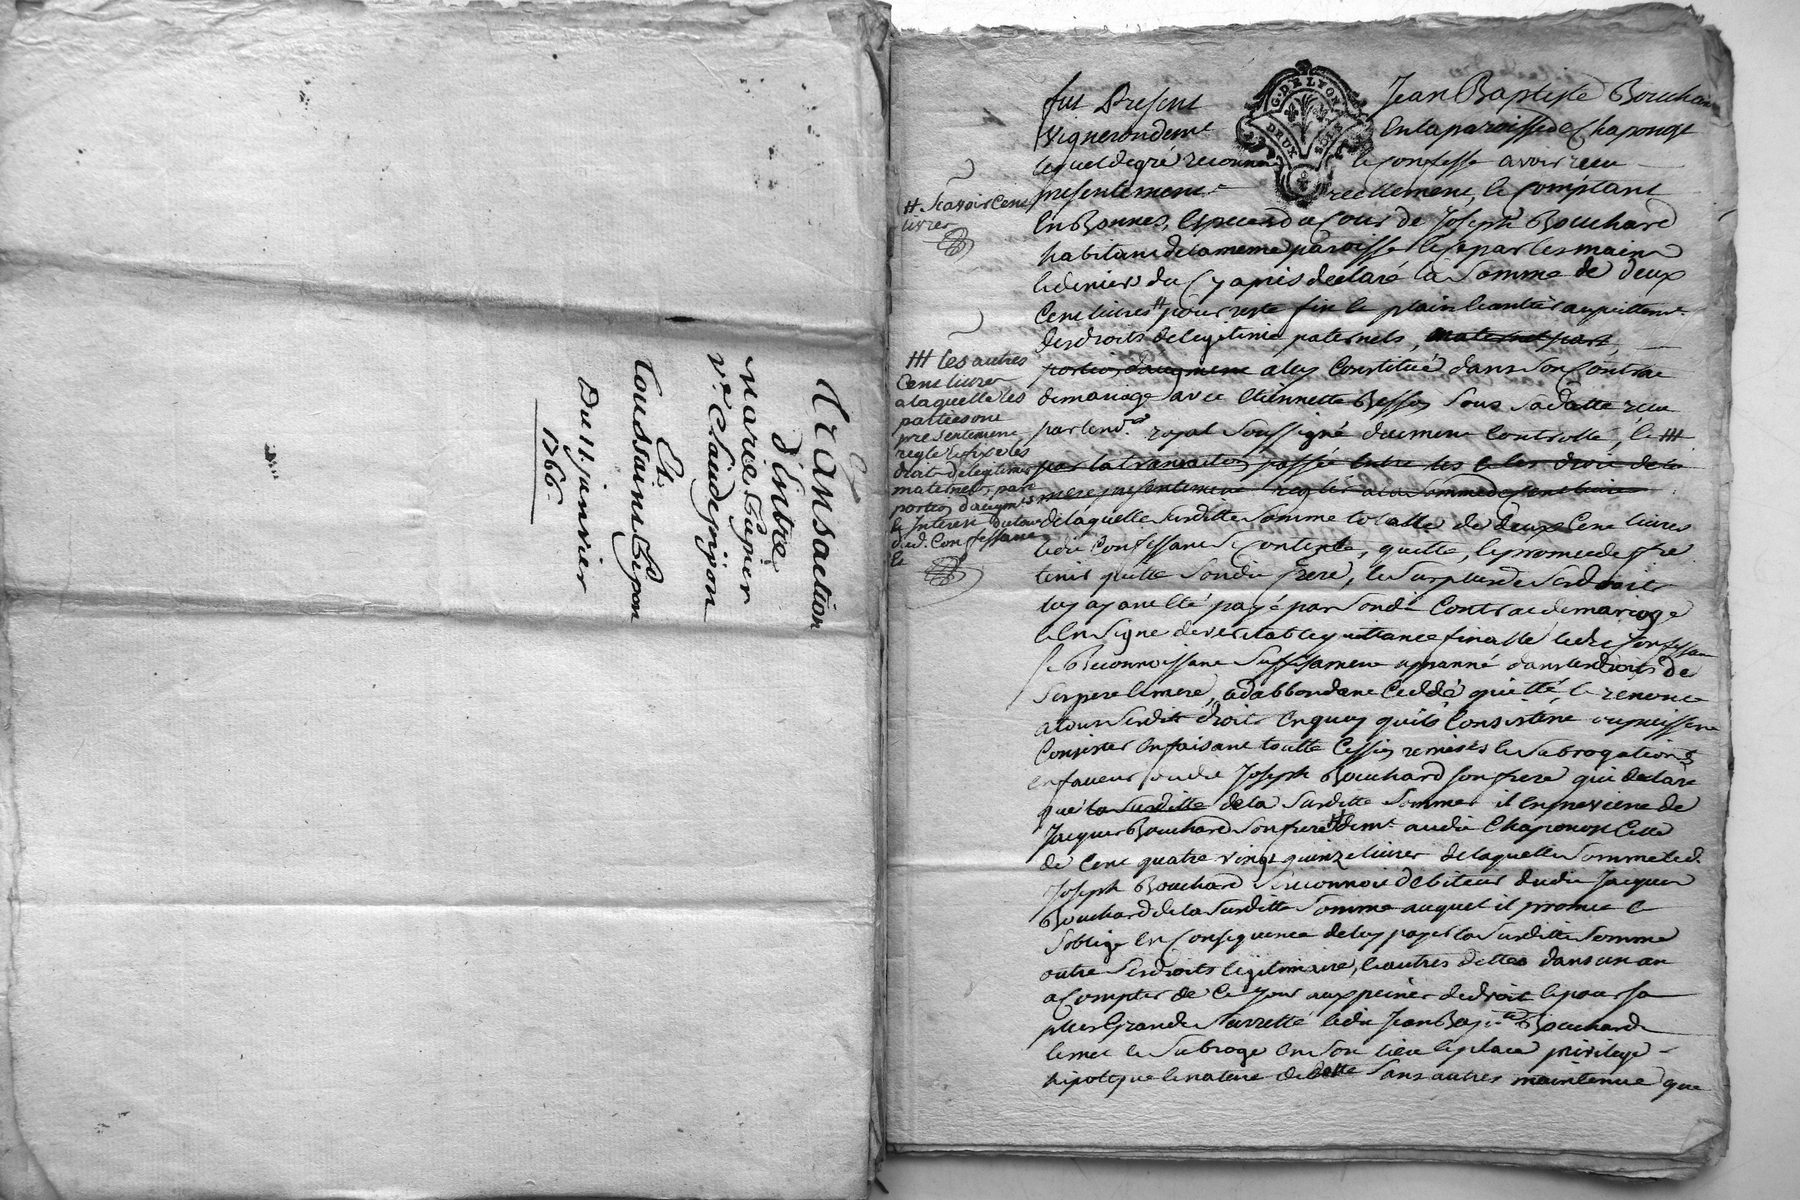 Transaction
d'Entre
marie Cupier
v.e Claude prijon
Et
Toussaint
Du 11. janvier
1766.
G. DE LYON
DEUX SOLS
fut Present Jean Baptiste Bouchard
Vigneron demt En la paroisse de Chaponost
lequel de gré reconnu et confesse avoir reçu
presentement reellement, et Comptant
En Bonnes, Especes du Cour de Joseph Bouchard
habitant de la meme paroisse et par les mains
et deniers du Cy apres declaré la Somme de deux
Cent livres # pour reste fin et plain et entier acquittemt
des droits de legitime paternels, maternel part
portion d'augment a luy Constitué dans son Contrat
de mariage avec Etiennette Besson Sous Sa datte reçu
par le nore royal Soussigné duement Controllé, et ##
par la transaction passée entre les et les droit de la
mere presentement regler a la Somme de cent livres
# Scavoir Cent
livres
## les autres
Cent livres
a laquelle les
parties ont
presentement
reglé et fixé les
droits de legitime
maternels, part
portion d'augmt
et Interest dus aud.
d. Confessant
Et
de laquelle Susditte Somme totalle de deux Cent livres
ledit Confessant Se Contente, quitte, et promet de faire
tenir quitte Sondit frere, le Surplus de Ses droits
luy ayant Eté payé par Sondt Contrat de mariage
et En Signe de veritable quittance finalle ledit Confessant
Se Reconnoissant Suffisament apanné dans les droits de
Ses pere et mere, a d'abbondant Ceddé quitté, et renoncé
a tous Sesdits droits En quoy quils Consistent ou puissent
Consister En faisant toutte Cession remises et Subrogations
en faveur dudit Joseph Bouchard Son frere qui declare
que la Susditte de la Susditte Somme il En provient de
Jacques Bouchard Son frere # demt audit Chaponost Celle
de Cent quatre vingt quinze livres de laquelle Somme led.
Joseph Bouchard Se reconnoit debiteur dudit Jacques
Bouchard de la Susditte Somme auquel il promet et
S'oblige En Consequence de luy payer la Susditte Somme
outre Ses droits legitimaire, et autres dettes dans un an
a Compter de Ce jour aux peines de droit et pour Sa
plus Grande Surretté ledit Jean Bap.te Bouchard
le met et Subroge En Son lieu et place privilege
hipoteque et nature de dette Sans autres maintenue que